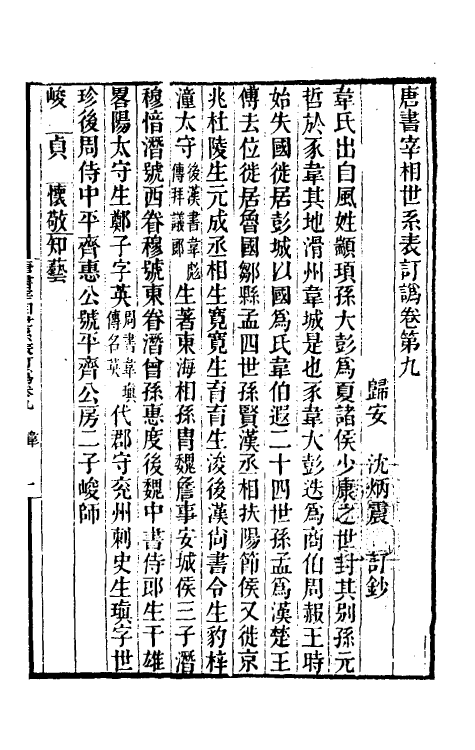 唐書宰相世系表訂譌卷第九
歸安　沈炳震　訂鈔
韋氏出自風姓顓頊孫大彭爲夏諸侯少康之世封其別孫元
哲於豕韋其地滑州韋城是也豕韋大彭迭爲商伯周赧王時
始失國徙居彭城以國爲氏韋伯遐二十四世孫孟爲漢楚王
傅去位徙居魯國鄒縣孟四世孫賢漢丞相扶陽節侯又徙京
兆杜陵生元成丞相生寬寬生育育生浚後漢尙書令生豹梓
潼太守後漢書韋彪傳拜議郞生著東海相孫胄魏詹事安城侯三子潛
穆愔潛號西眷穆號東眷潛曾孫惠度後魏中書侍郎生千雄
畧陽太守生鄭子字英周書韋瑱傳名英代郡守兖州刺史生瑱字世
珍後周侍中平齊惠公號平齊公房二子峻師
峻　貞　懷敬知藝
韋　一